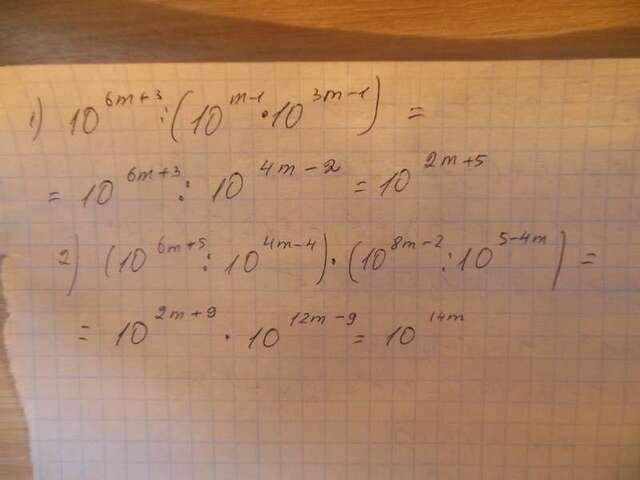 1) 10^{6m+3} : (10^{m-1} · 10^{3m-1}) =
= 10^{6m+3} : 10^{4m-2} = 10^{2m+5}
2) (10^{6m+5} : 10^{4m-4}) · (10^{8m-2} : 10^{5-4m}) =
= 10^{2m+9} · 10^{12m-9} = 10^{14m}